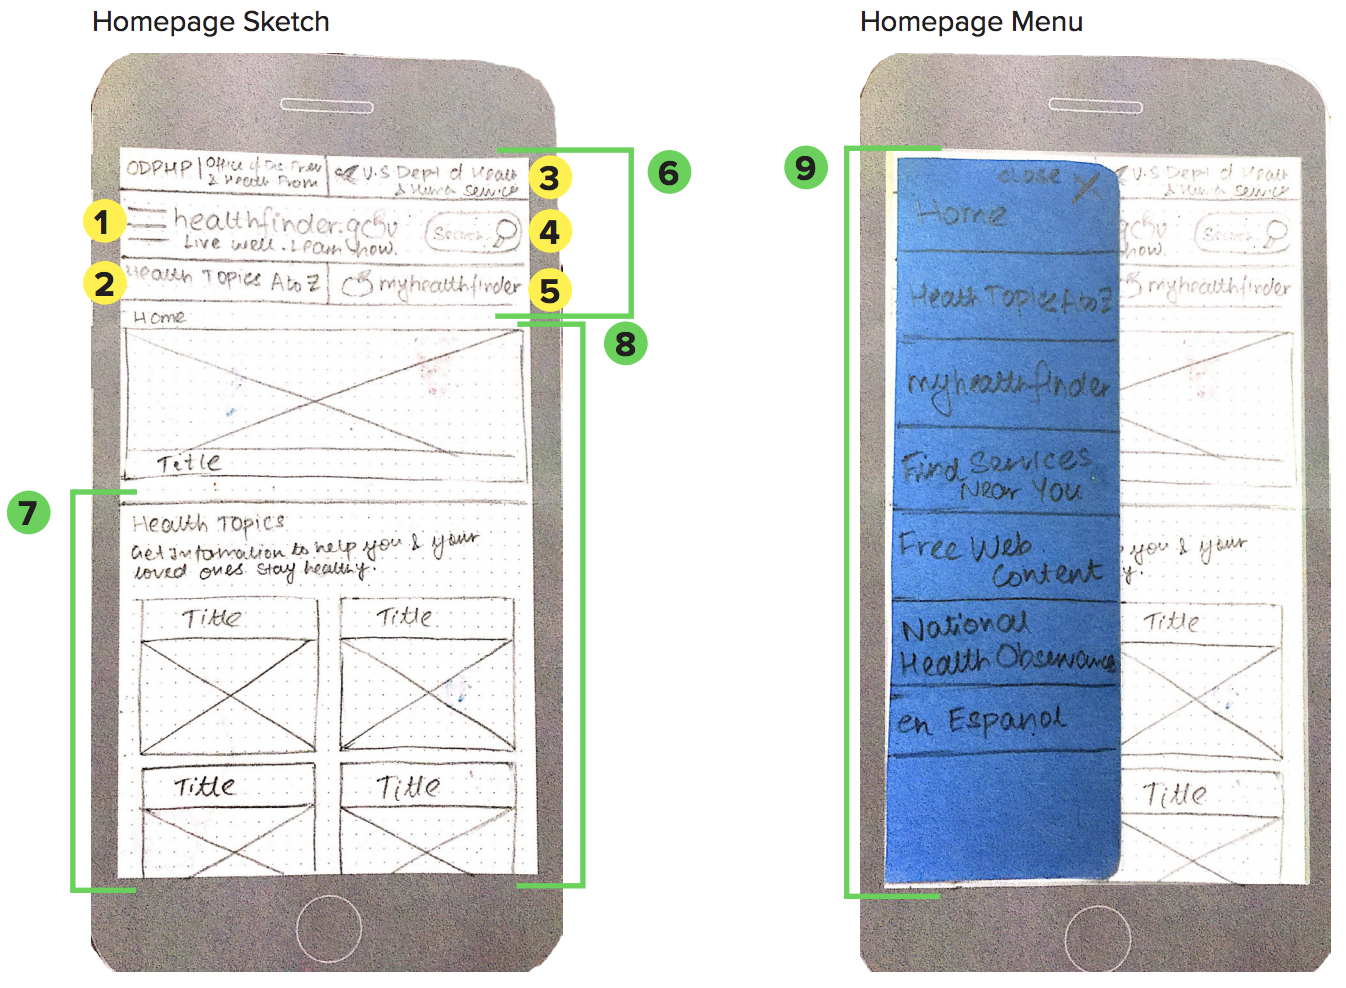 Homepage Sketch
ODPHP | Office of Dis. Prev
& Health Prom
U.S Dept of Health
& Human Service
3
6
1
healthfinder.gov
Live well. Learn how.
Search
4
2
Health Topics A to Z
myhealthfinder
5
Home
8
Title
7
Health Topics
Get Information to help you & your
loved ones stay healthy.
Title
Title
Title
Title
Homepage Menu
9
close X
Home
Health Topics A to Z
myhealthfinder
Find Services
Near You
Free Web
Content
National
Health Observance
en Espanol
U.S Dept of Health
& Human Service
Search
how.
myhealthfinder
you & your
y.
Title
Title